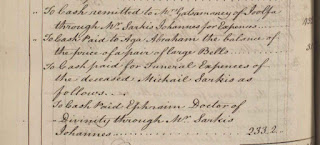 " To Cash remitted to Mr. Galsanuney of Joolfa
through Mr. Sarkis Johannes for Expences
" To Cash Paid to Aga Abraham the balance of
the price of a pair of large Bells
" To Cash paid for Funeral Expences of
the diseased Michail Sarkis as
follows
To Cash Paid Ephraim Doctor of
Divinity through Mr. Sarkis
Johannes 233,2